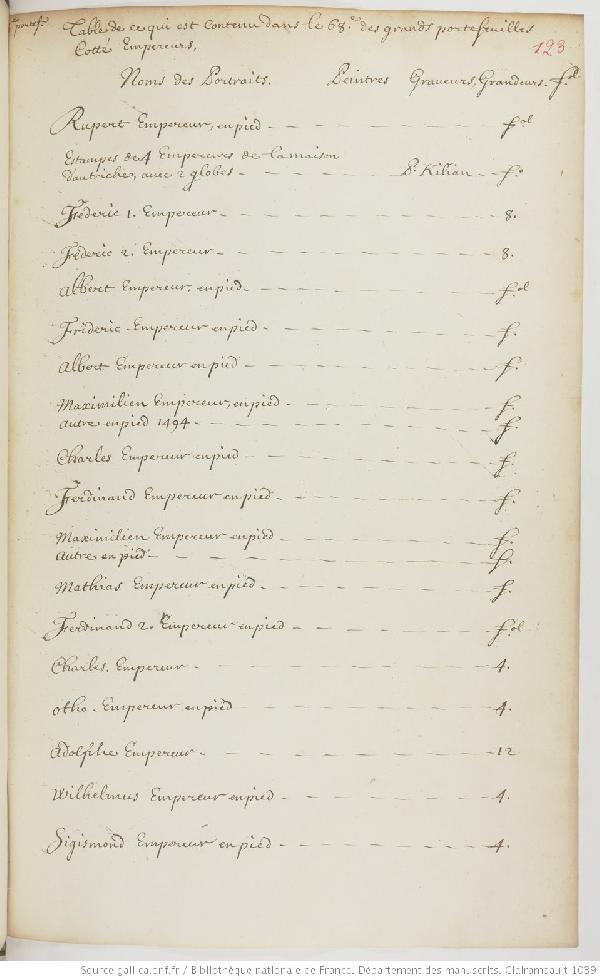 portef.
Table de ce qui est Contenu dans le 68.e des grands portefeuilles
Cotté Empereurs,
123
Noms des Portraits. Peintres Graveurs, Grandeurs. fol
Rupert Empereur, en pied fol
Estampes des 4 Empereurs de la maison
d'autriche, avec 2 globes P. Kilian f.o
Fréderic 1. Empereur 8.
Fréderic 2. Empereur 8.
Albert Empereur, en pied f.ol
Fréderic Empereur en pied f.
Albert Empereur en pied f.
Maximilien Empereur, en pied f.
autre en pied 1494 f.
Charles Empereur en pied f.
Ferdinand Empereur en pied f.
Maximilien Empereur en pied f.
autre en pied f.
Mathias Empereur en pied f.
Ferdinand 2. Empereur en pied f.ol
Charles. Empereur 4.
otho. Empereur en pied 4.
Adolphe Empereur 12
Wilhelmus Empereur en pied 4.
Sigismond Empereur en pied 4.
Source gallica.bnf.fr / Bibliothèque nationale de France. Département des manuscrits. Clairambault 1039